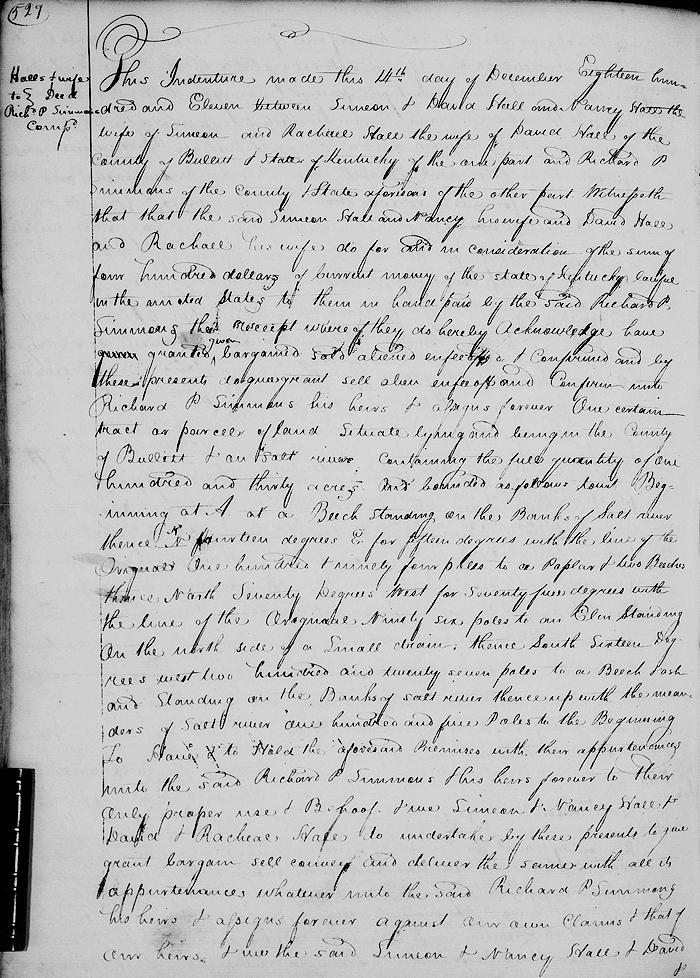 529
Halls & wife
to } Deed
Richd P Simmons
Compd.
This Indenture made this 14th day of December Eighteen hun-
dred and Eleven between Simeon & David Hall and Nancy Hall the
wife of Simeon and Rachael Hall the wife of David Hall of the
County of Bullitt & State of Kentucky of the one part and Richard P
Simmons of the County & State aforesaid of the other part Witnesseth
that that the said Simeon Hall and Nancy his wife and David Hall
and Rachael his wife do for and in consideration of the sum of
four hundred dollars of Current money of the state of Kentucky lawful
in the united States to them in hand paid by the said Richard P.
Simmons the receipt where of they do hereby Acknowledge have
given granted, bargained sold aliened enfeoffed & Confirmed and by
these presents do give grant sell alien enfeoff and Confirm unto
Richard P Simmons his heirs & assigns forever One certain
tract or parcel of land Situate lying and being in the County
of Bullitt & on Salt river Containing the full quantity of one
hundred and thirty acres. and bounded as follows to wit Beg-
inning at A at a Beech Standing on the Banks of Salt river
thence N fourteen degrees E for fifteen degrees with the line of the
Original One hundred & ninety four poles to a Poplar & two Beeches
thence North Seventy Degrees West for Seventy four degrees with
the line of the Original Ninety six poles to an Elm Standing
On the north side of a Small drain; thence South Sixteen Deg-
rees west two hundred and twenty seven poles to a Beech & ash
and Standing on the Banks of salt river thence up with the mean-
ders of Salt river one hundred and five Poles to the Beginning
To Have & to Hold the aforesaid Premises with their appurtenances
unto the said Richard P Simmons & his heirs forever to their
only proper use & Behoof. & we Simeon & Nancy Hall &
David & Racheal Hall to undertake by these presents to give
grant bargain sell convey and deliver the same with all its
appurtenances whatever unto the said Richard P Simmons
his heirs & assigns forever against our own Claims & that of
our heirs. & we the said Simeon & Nancy Hall & David
&